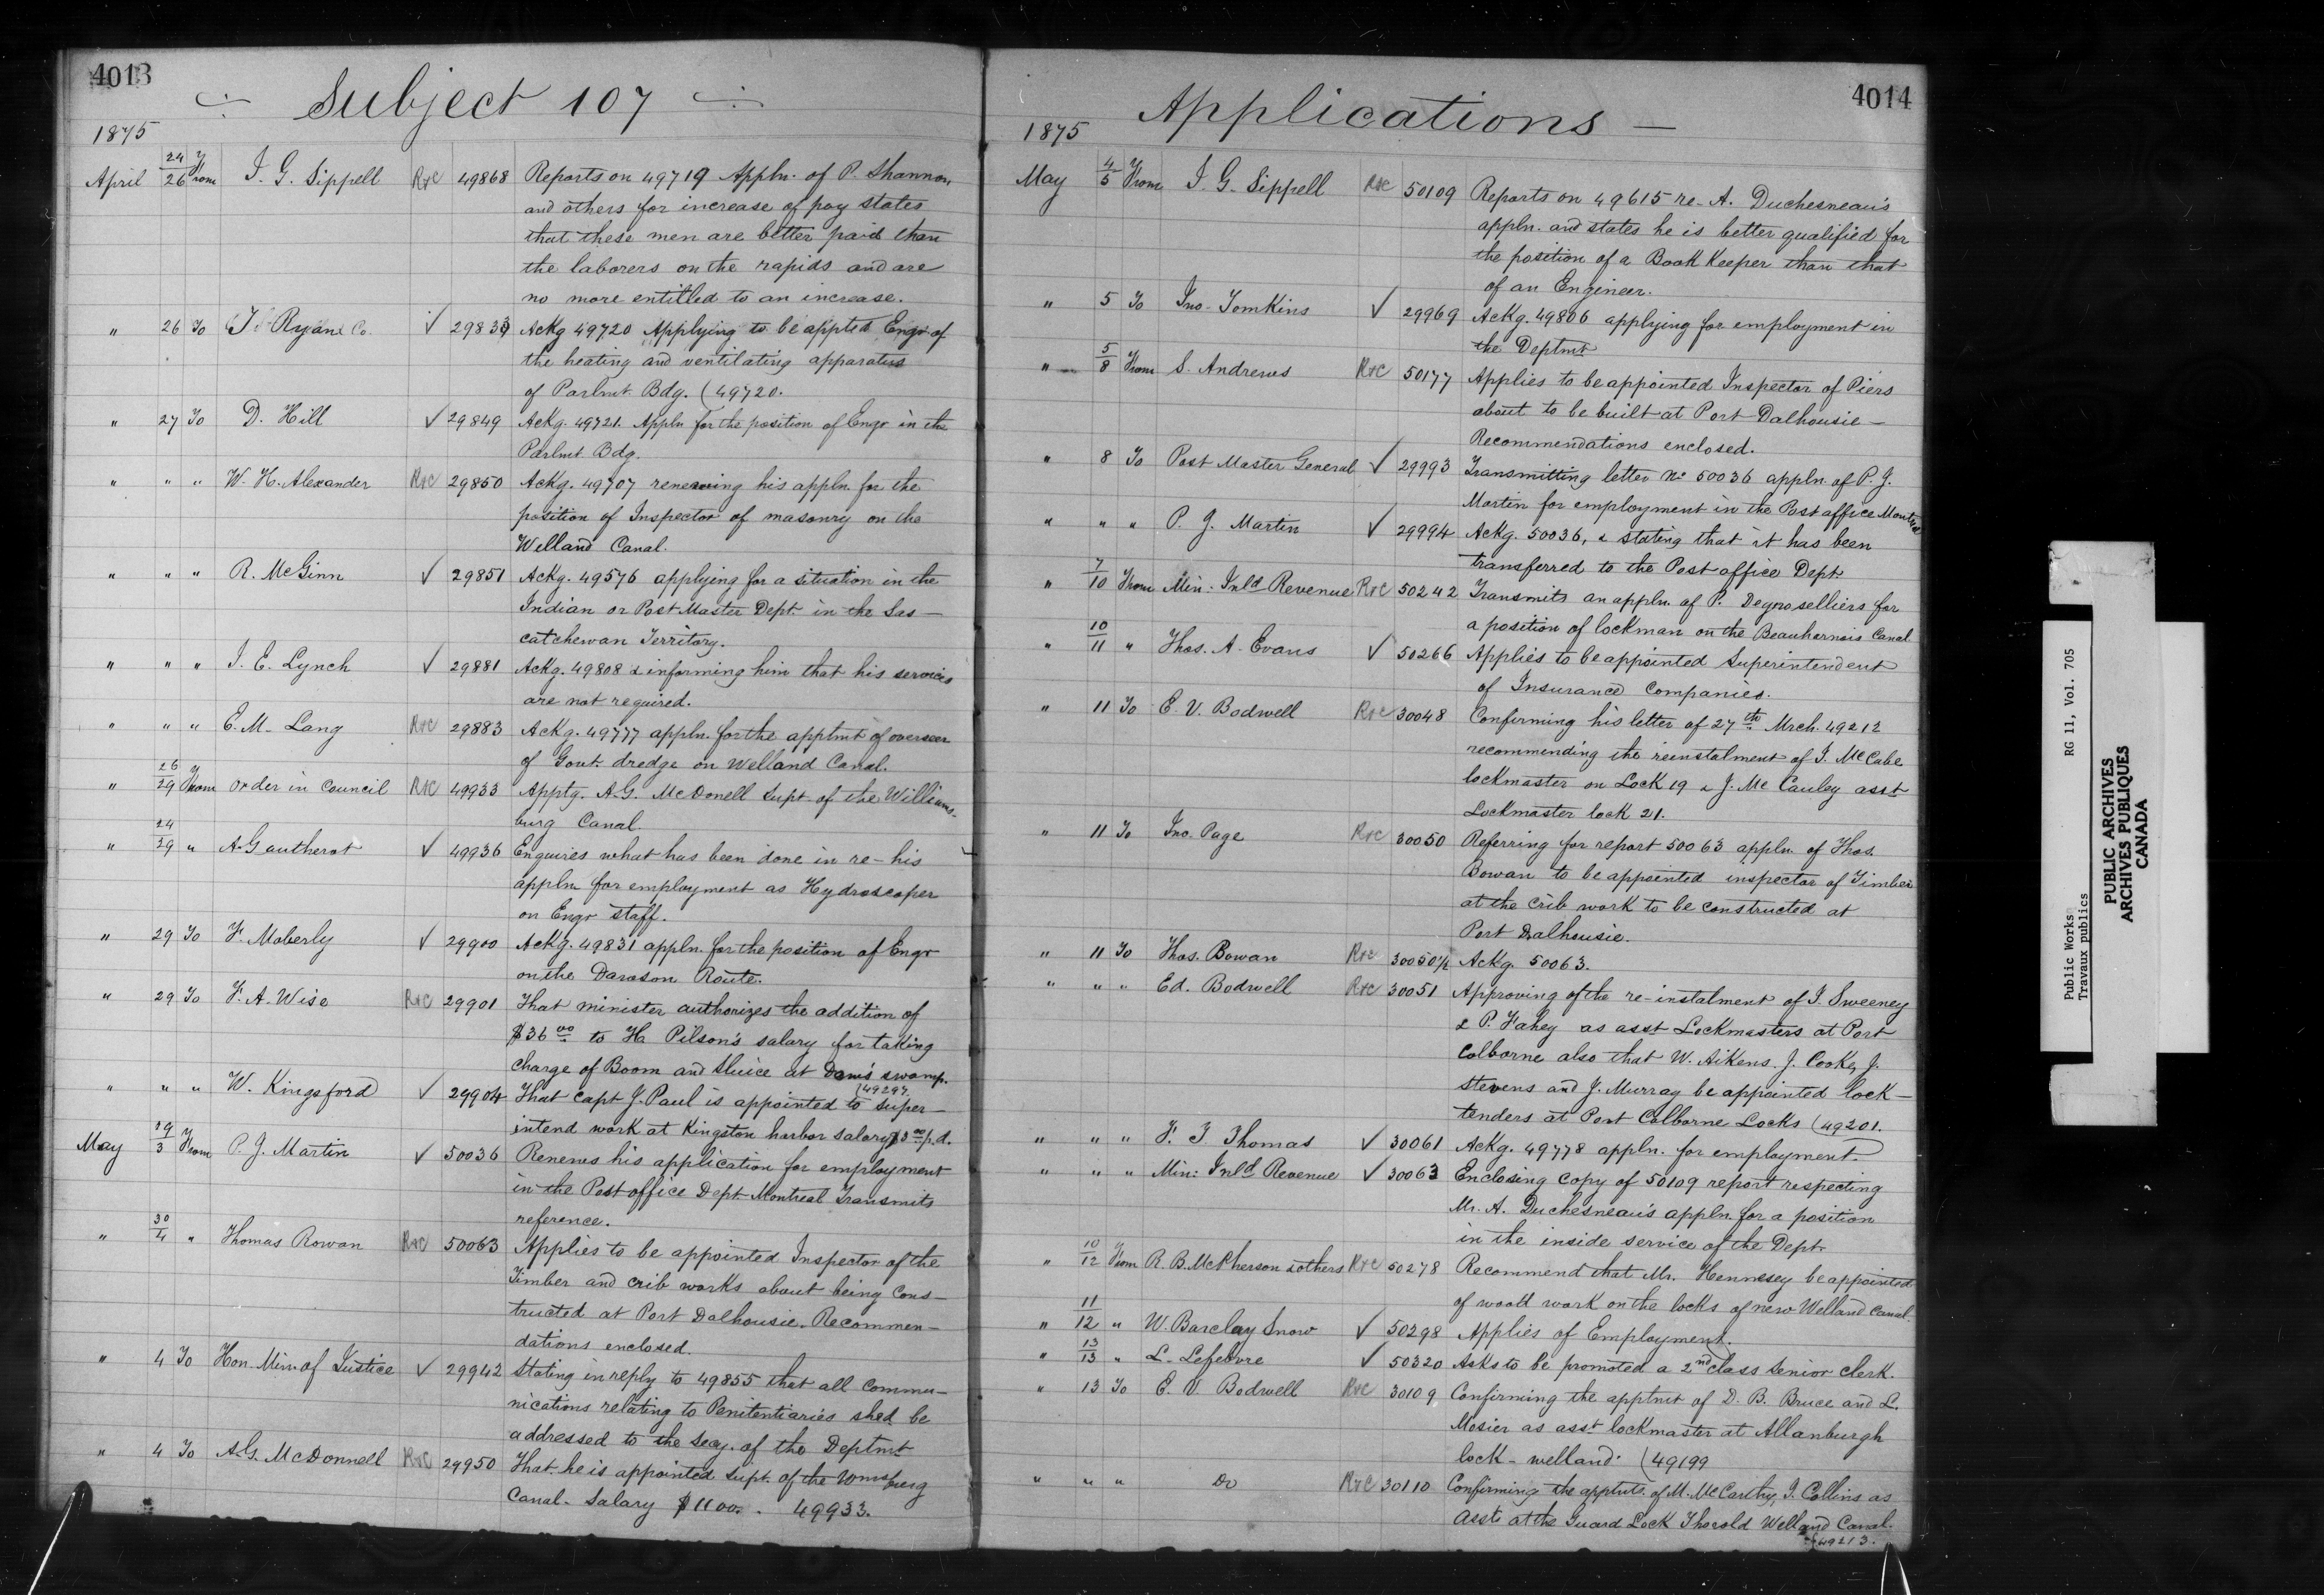 4013
Subject 107
1875
April 24/26 From J. G. Sippell R+C 49868 Reports on 49719 Appln. of P. Shannon
and others for increase of pay states
that these men are better paid than
the laborers on the rapids and are
no more entitled to an increase.
" 26 To Ryan & Co. ✓ 29839 Ackg 49720 Applying to be appted Engr of
the heating and ventilating apparatus
of Parlmt Bdg. (49720.
" 27 To D. Hill ✓ 29849 Ackg. 49721. Appln for the position of Engr in the
Parlmt Bdg.
" " " W. H. Alexander R+C 29850 Ackg. 49707 renewing his appln. for the
position of Inspector of masonry on the
Welland Canal.
" " " R. McGinn ✓ 29851 Ackg. 49576 applying for a situation in the
Indian or Post Master Dept. in the Sas-
catchewan Territory.
" " " J. E. Lynch ✓ 29881 Ackg. 49808 & informing him that his services
are not required.
" " " E. M. Lang R+C 29883 Ackg. 49777 appln. for the apptmt of overseer
of Govt. dredge on Welland Canal.
" 26/29 From order in Council R+C 49933 Apptg. A. G. McDonell Supt. of the Williams-
burg Canal.
" 24/29 " A. Gautherot ✓ 49936 Enquires what has been done in re- his
appln for employment as Hydroscoper
on Engr staff.
" 29 To F. Moberly ✓ 29900 Ackg. 49831 appln. for the position of Engr
on the Darason Route.
" 29 To F. A. Wise R+C 29901 That minister authorizes the addition of
$36 00 to H. Pilson's salary for taking
charge of Boom and Sluice at Dam's swamp.
(49297.
" " " W. Kingsford ✓ 29904 That Capt J. Paul is appointed to super-
intend work at Kingston harbor salary $3 00 p.d.
May 19/3 From P. J. Martin ✓ 50036 Renews his application for employment
in the Post office Dept Montreal Transmits
reference.
" 30/4 " Thomas Rowan R+C 50063 Applies to be appointed Inspector of the
Timber and crib works about being cons-
tructed at Port Dalhousie. Recommen-
dations enclosed.
" 4 To Hon. Min. of Justice ✓ 29942 Stating in reply to 49855 that all commu-
nications relating to Penitentiaries shld be
addressed to the Secy. of the Deptmt
" 4 To A. G. McDonnell R+C 29950 That he is appointed Supt. of the Wmsburg
Canal - Salary $1100. - 49933.
4014
Applications -
1875
May 4/5 From J. G. Sippell R+C 50109 Reports on 49615 re- A. Duchesneau's
appln. and states he is better qualified for
the position of a Book Keeper than that
of an Engineer.
" 5 To Jno. Tomkins ✓ 29969 Ackg. 49806 applying for employment in
the Deptmt
" 5/8 From S. Andrews R+C 50177 Applies to be appointed Inspector of Piers
about to be built at Port Dalhousie -
Recommendations enclosed.
" 8 To Post Master General ✓ 29993 Transmitting letter No 50036 appln. of P. J.
Martin for employment in the Post office Montreal
" " " P. J. Martin ✓ 29994 Ackg. 50036, & stating that it has been
transferred to the Post office Dept.
" 7/10 From Min: Inld Revenue R+C 50242 Transmits an appln. of P. Degroselliers for
a position of lockman on the Beauharnois Canal
" 10/11 " Thos. A. Evans ✓ 50266 Applies to be appointed Superintendent
of Insurance Companies.
" 11 To E. V. Bodwell R+C 30048 Confirming his letter of 27th Mrch. 49212
recommending the reinstalment of J. McCabe
lockmaster on Lock 19 & J. McCauley asst
Lockmaster lock 21.
" 11 To Jno. Page R+C 30050 Referring for report 50063 appln. of Thos.
Bowan to be appointed inspector of Timber
at the crib work to be constructed at
Port Dalhousie.
" 11 To Thos. Bowan R+C 30050½ Ackg. 50063.
" " " Ed. Bodwell R+C 30051 Approving of the re-instalment of J. Sweeney
& P. Fahey as asst Lockmasters at Port
Colborne also that W. Aikens. J. Cooke, J.
Stevens and J. Murray be appointed lock-
tenders at Port Colborne Locks (49201.
" " " F. J. Thomas ✓ 30061 Ackg. 49778 appln. for employment.
" " " Min: Inld Revenue ✓ 30063 Enclosing copy of 50109 report respecting
Mr. A. Duchesneau's appln. for a position
in the inside service of the Dept.
" 10/12 From R. B. McPherson & others R+C 50278 Recommend that Mr. Hennesey be appointed
of woold work on the locks of new Welland Canal.
" 11/12 " W. Barclay Snow ✓ 50298 Applies of Employment.
" 13/13 " L. Lefebvre ✓ 50320 Asks to be promoted a 2nd class Senior clerk.
" 13 To E. V. Bodwell R+C 30109 Confirming the apptmt of D. B. Bruce and L.
Mosier as asst lockmaster at Allanburgh
lock - welland. (49199
" " " Do R+C 30110 Confirming the apptmts. of M. McCarthy, J. Collins as
Assts at the Guard Lock Thorold Welland Canal.
(49213.
Public Works RG 11, Vol. 705
Travaux publics
PUBLIC ARCHIVES
ARCHIVES PUBLIQUES
CANADA